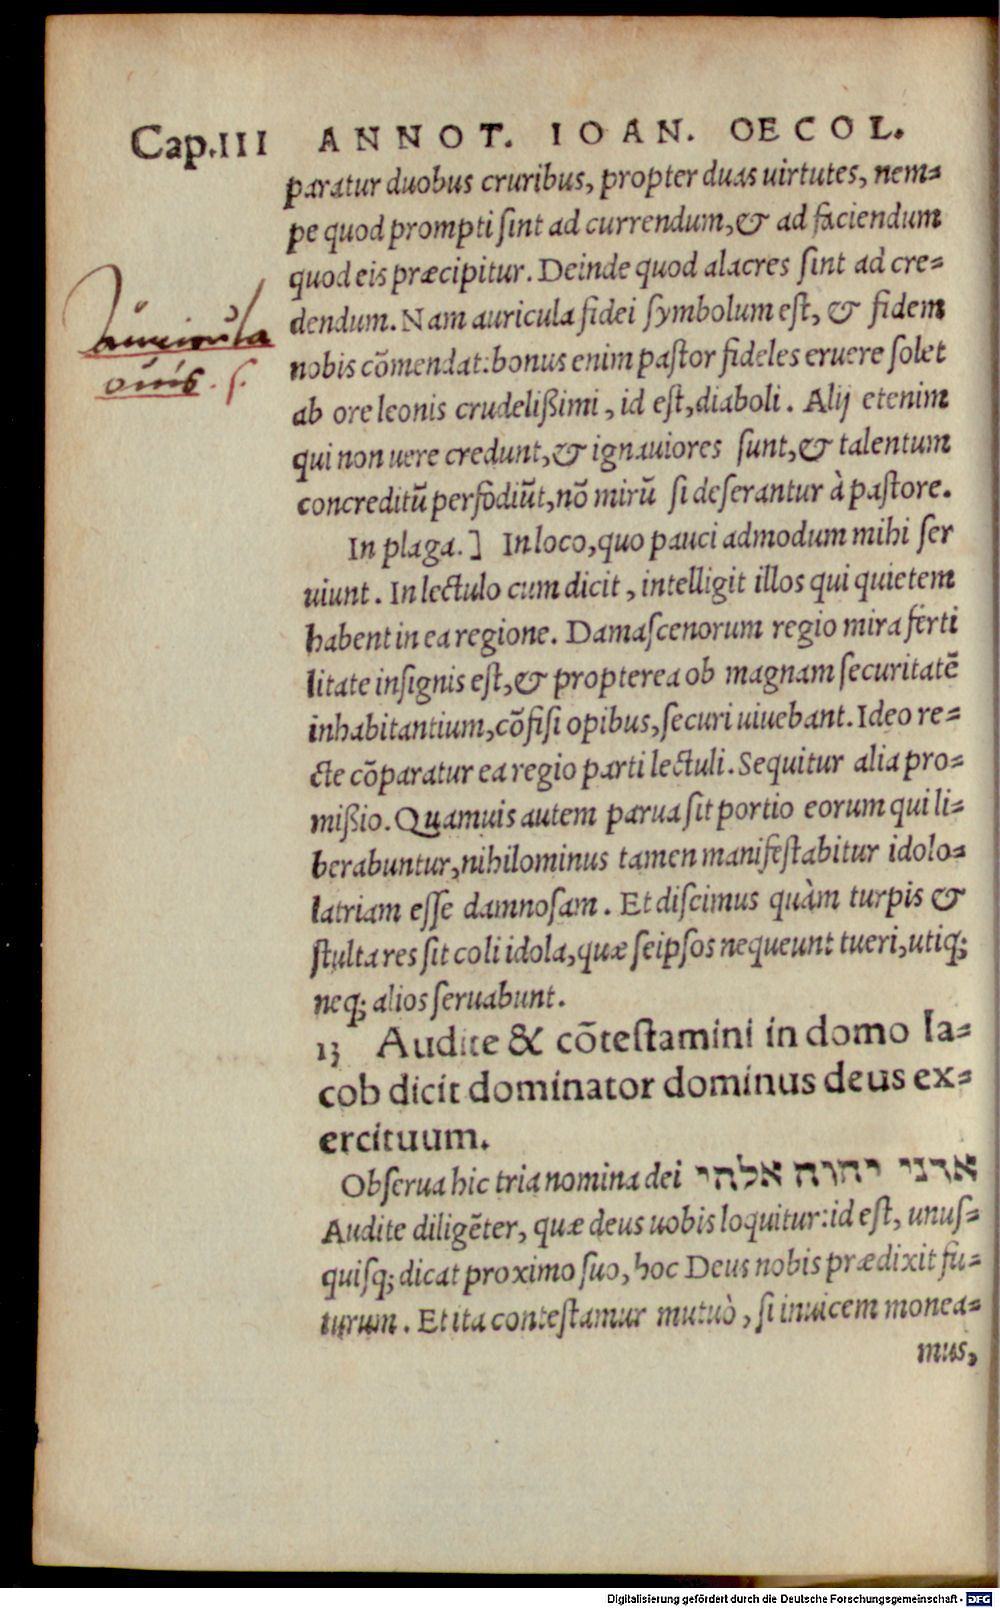 Cap.III ANNOT. IOAN. OECOL.
paratur duobus cruribus, propter duas uirtutes, nem-
pe quod prompti ſint ad currendum, & ad faciendum
quod eis præcipitur. Deinde quod alacres ſint ad cre-
dendum. Nam auricula fidei ſymbolum eſt, & fidem
Auricula
ouis. ſ.
nobis cõmendat: bonus enim paſtor fideles eruere ſolet
ab ore leonis crudelißimi, id eſt, diaboli. Alij etenim
qui non uere credunt, & ignauiores ſunt, & talentum
concreditũ perfodiũt, nõ mirũ ſi deſerantur à paſtore.
In plaga.] In loco, quo pauci admodum mihi ſer
uiunt. In lectulo cum dicit, intelligit illos qui quietem
habent in ea regione. Damaſcenorum regio mira ferti
litate inſignis eſt, & propterea ob magnam ſecuritatẽ
inhabitantium, cõfiſi opibus, ſecuri uiuebant. Ideo re-
cte cõparatur ea regio parti lectuli. Sequitur alia pro-
mißio. Quamuis autem parua ſit portio eorum qui li-
berabuntur, nihilominus tamen manifeſtabitur idolo-
latriam eſſe damnoſam. Et diſcimus quàm turpis &
ſtulta res ſit coli idola, quæ ſeipſos nequeunt tueri, utiq;
neq; alios ſeruabunt.
13 Audite & cõteſtamini in domo Ia-
cob dicit dominator dominus deus ex-
ercituum.
Obſerua hic tria nomina dei אדני יהוה אלהי
Audite diligẽter, quæ deus uobis loquitur: id eſt, unuſ-
quiſq; dicat proximo ſuo, hoc Deus nobis prædixit fu-
turum. Et ita conteſtamur mutuò, ſi inuicem monea-
mus,
Digitalisierung gefördert durch die Deutsche Forschungsgemeinschaft - DFG